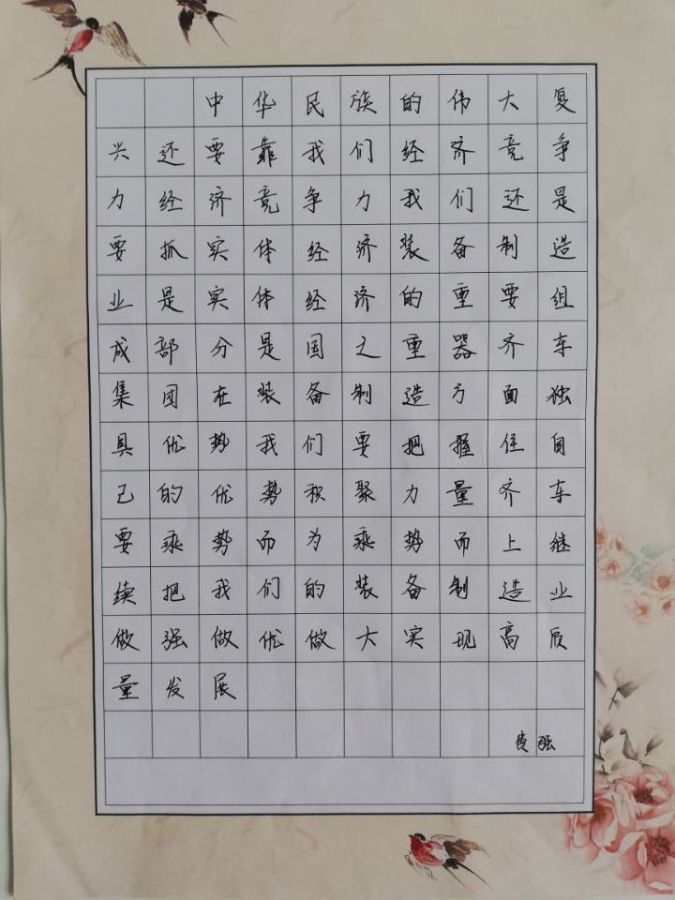 中华民族的伟大复
兴还要靠我们经济竞争
力经济竞争力我们还是
要抓实体经济装备制造
业是实体经济的重要组
成部分是国之重器齐车
集团在装备制造方面独
具优势我们要把握住自
己的优势积聚力量齐车
要乘势而为乘势而上继
续把我们的装备制造业
做强做优做大实现高质
量发展
贵强